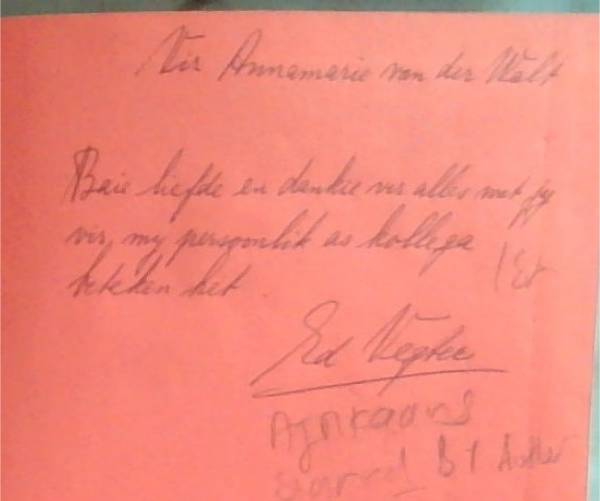 Vir Annamarie van der Walt
Baie liefde en dankie vir alles wat jy
vir my persoonlik as kollega
beteken het
Ed Vegter
Afrikaans
BY Author